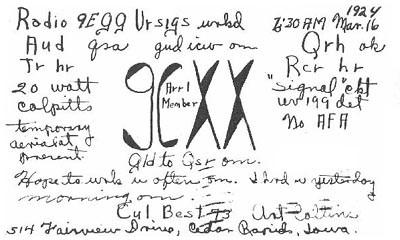 1924
Radio 9EGG Ur sigs wrkd 6:30 AM Mar. 16
Aud qsa gud icw om Qrh ok
Tr hr Rcr hr
20 watt "Signal" ckt
colpitts uv 199 det
temporary No AFA
aerial at
present.
Arrl
Member
9CXX
Gld to Qsr om.
Hope to wrk u often om. I hrd u yesterday
morning om.
Cul Best 73 Art Collins
514 Fairview Drive, Cedar Rapids, Iowa.